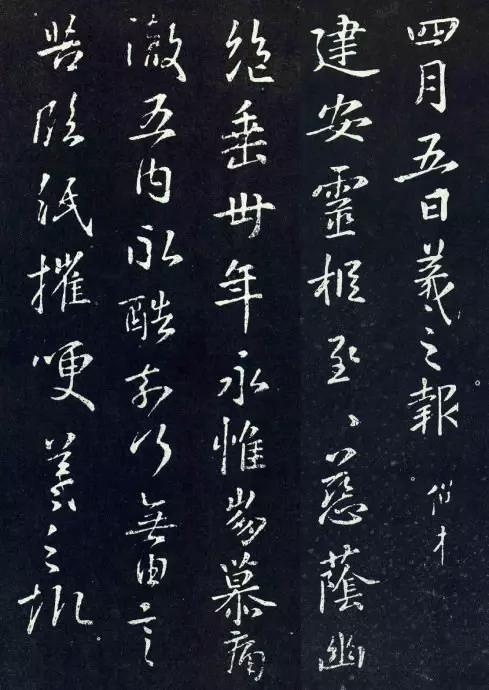 四月五日羲之報
建安靈柩至慈蔭幽
絕垂卅年永惟崩慕痛
徹五內永酷奈何無由言
苦臨紙摧哽羲之報